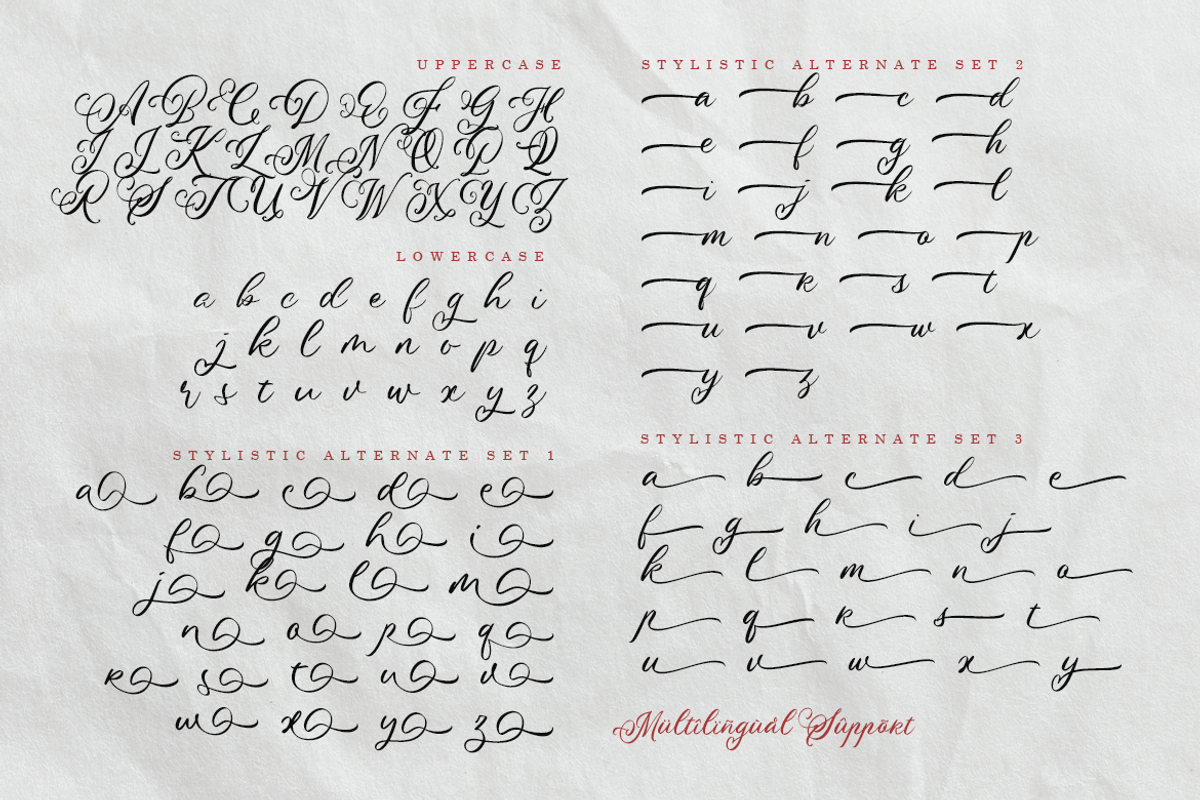 UPPERCASE
A B C D E F G H
I J K L M N O P Q
R S T U V W X Y Z
LOWERCASE
a b c d e f g h i
j k l m n o p q
r s t u v w x y z
STYLISTIC ALTERNATE SET 1
a b c d e
f g h i
j k l m
n o p q
r s t u v
w x y z
STYLISTIC ALTERNATE SET 2
a b c d
e f g h
i j k l
m n o p
q r s t
u v w x
y z
STYLISTIC ALTERNATE SET 3
a b c d e
f g h i j
k l m n o
p q r s t
u v w x y
Mùltilïngûál Sûppõrt